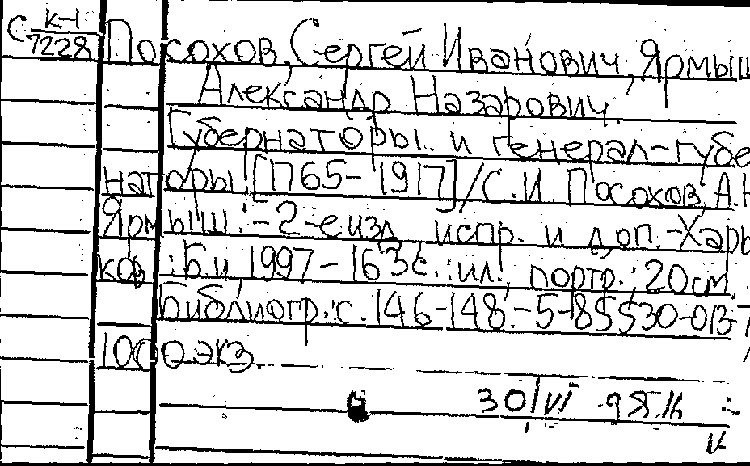 С К-1 7228
Посохов, Сергей Иванович, Ярмыш
Александр Назарович.
Губернаторы и генерал-губе
наторы [1765-1917] / С.И Посохов, А.Н
Ярмыш. - 2-е изд испр. и доп. - Харь
ков : Б.и, 1997 - 163с. : ил., портр. ; 20см.
Библиогр.: с. 146-148. - 5-85530-013-7
1000 экз.
30/VI